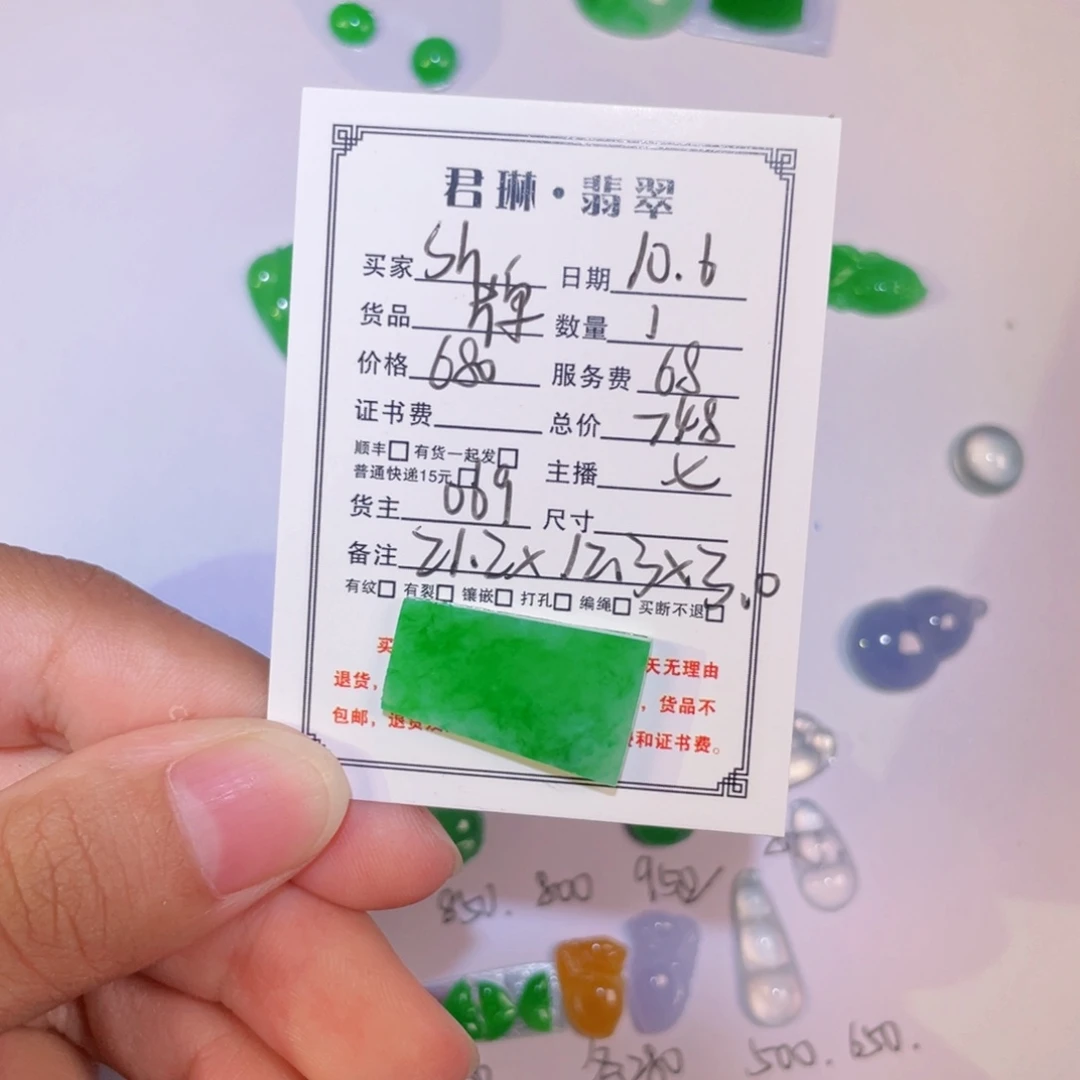 君琳·翡翠
买家 Sh 日期 10.6
货品 牌 数量 1
价格 680 服务费 68
证书费 总价 748
顺丰 有货一起发
普通快递15元 主播 x
货主 069 尺寸
备注 21.2x12.3x3.0
有纹 有裂 镶嵌 打孔 编绳 买断不退
买 天无理由
退货, , 货品不
包邮, 退货 和证书费。
850. 800 950
各280 500. 650.